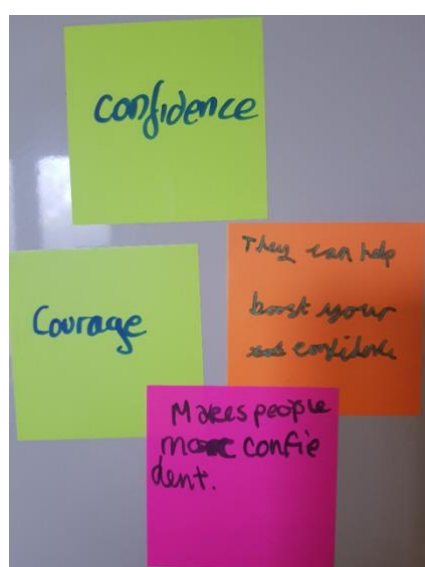 confidence
Courage
They can help
boost your
confidence
Makes people
more confie
dent.